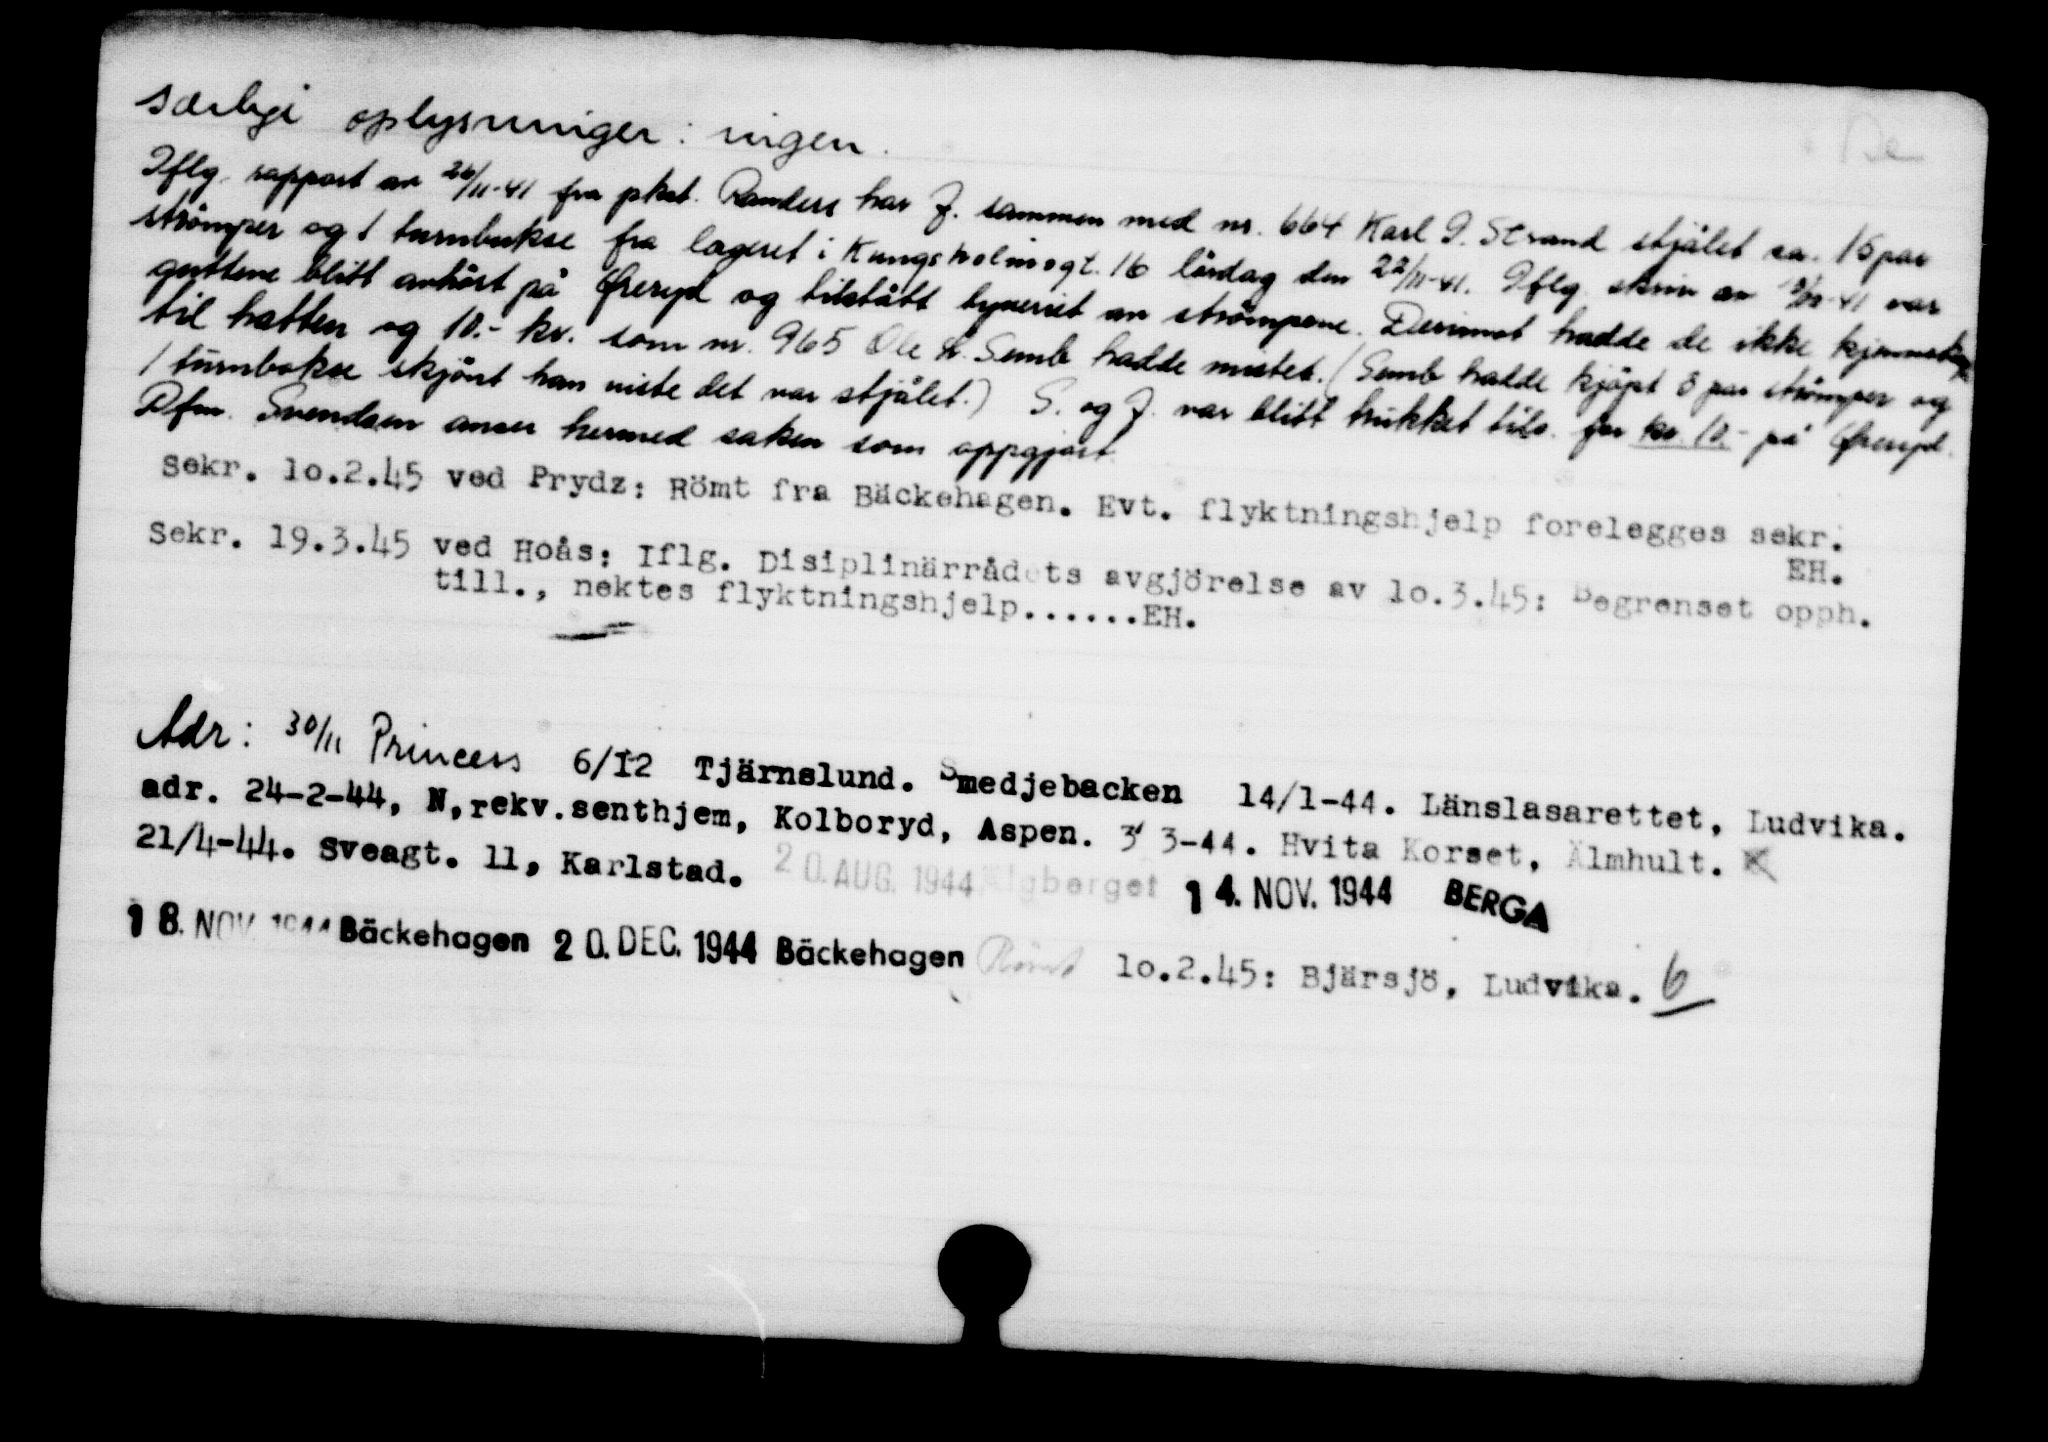 særlige oplysninger: ingen.
Iflg. rapport av 26/11-41 fra pkst. Randers har J. sammen med nr. 664 Karl I. Strand stjålet ca. 15 par
strömper og 1 turnbukse fra lageret i Kungsholmsgt. 16 lördag den 22/11-41. Iflg. skriv av 41 var
guttene blitt avhört på Öreryd og tilstått tyveriet av strömpene. Derimot hadde de ikke kjennskap
til hatten og 10.- kr. som nr. 965 Ole H. Semb hadde mistet. (Semb hadde kjöpt 8 par strömper og
1 turnbukse skjönt han viste det var stjålet.) S. og J. var blitt trukket tils. for kr. 10.- på Öreryd.
Pfm. Svendsen anser hermed saken som oppgjort.
Sekr. 10.2.45 ved Prydz: Römt fra Bäckehagen. Evt. flyktningshjelp forelegges sekr.
EH.
Sekr. 19.3.45 ved Hoås: Iflg. Disiplinärrådets avgjörelse av 10.3.45: Begrenset opph.
till., nektes flyktningshjelp......EH.
Adr: 30/11 Princess 6/12 Tjärnslund. Smedjebacken 14/1-44. Länslasarettet, Ludvika.
adr. 24-2-44, N,rekv.senthjem, Kolboryd, Aspen. 3/ 3-44. Hvita Korset, Älmhult.
21/4-44. Sveagt. 11, Karlstad. 20. AUG. 1944 Älgberget 14. NOV. 1944 BERGA
18. NOV. 1944 Bäckehagen 20. DEC. 1944 Bäckehagen Römt 10.2.45: Bjärsjö, Ludvika. 6